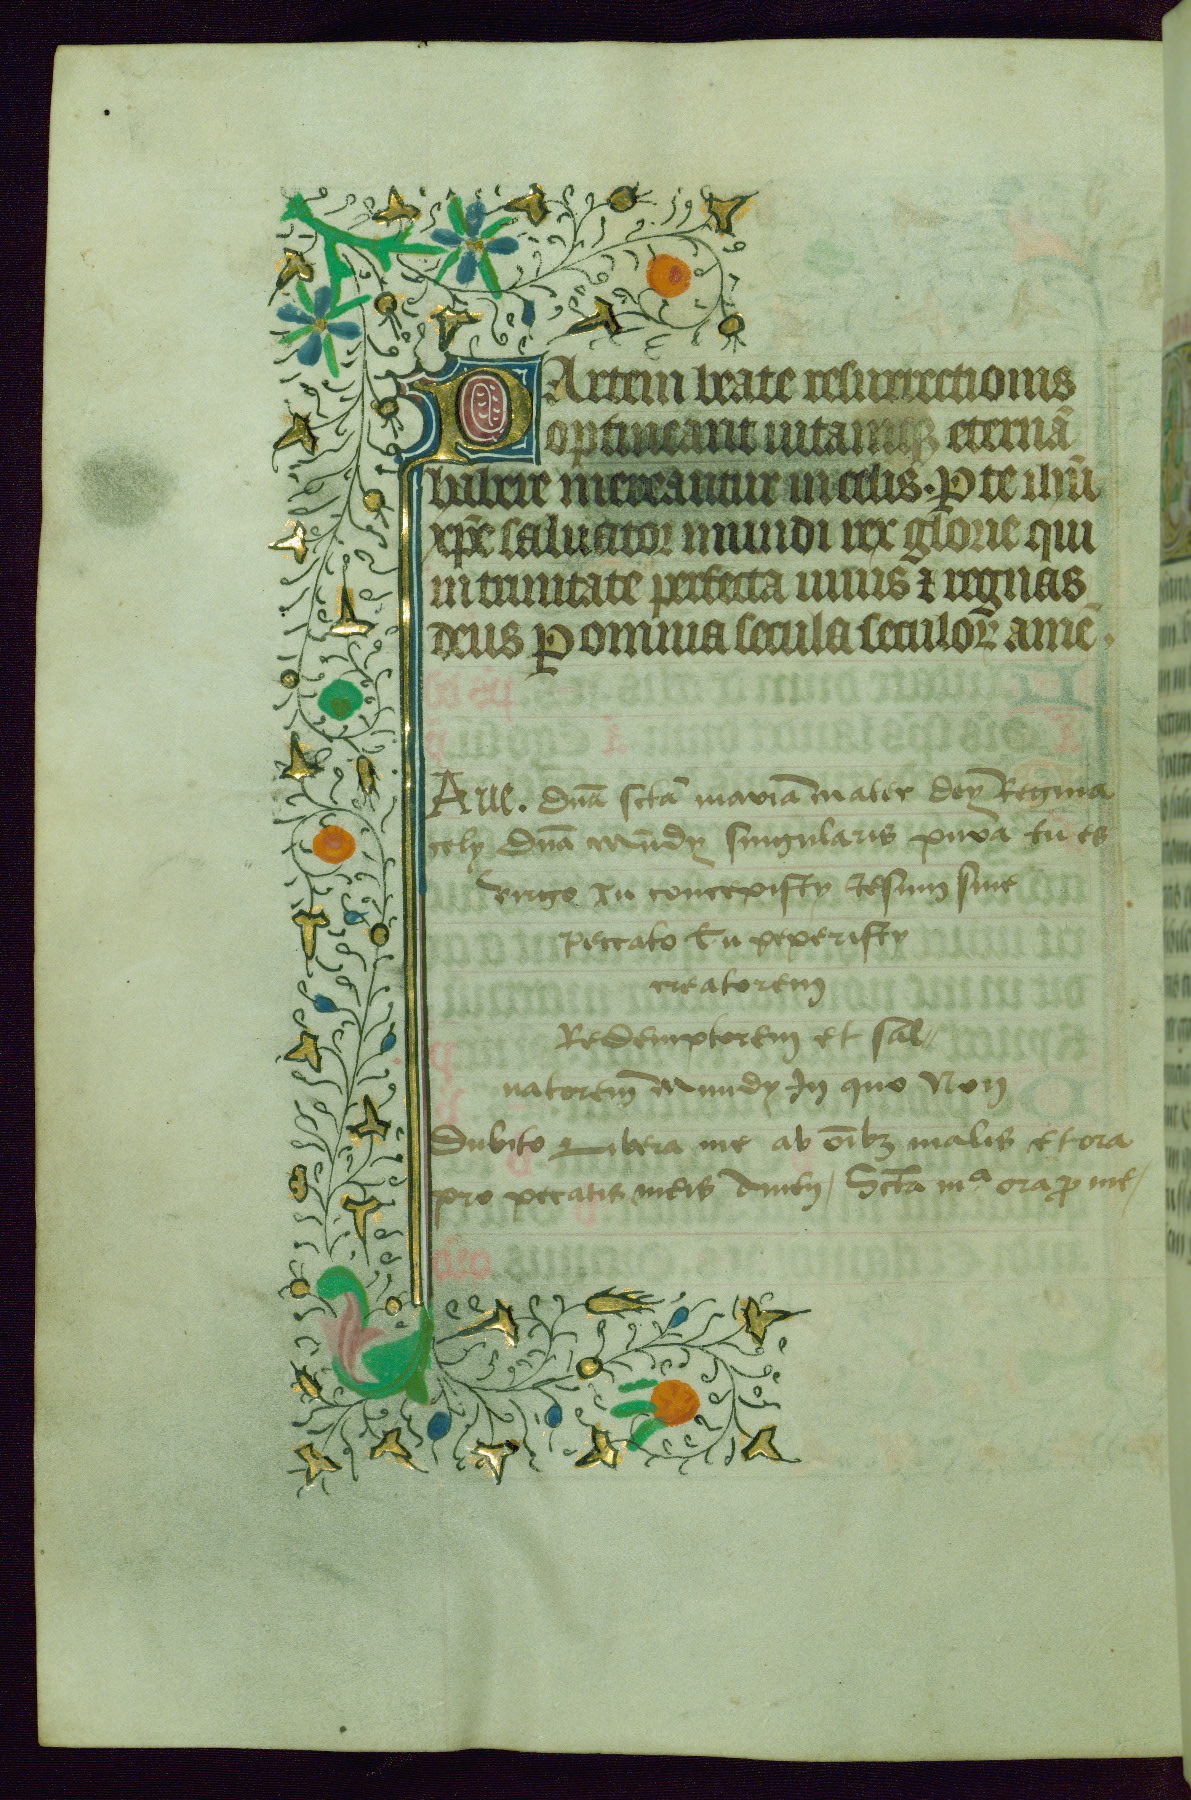 PArtem beate resurrectionis
optineant uitamqꝫ eternā
habere mereantur in celis. ꝑ te ihū
xp̄e saluator mundi rex glorie qui
in trinitate perfecta uiuis ⁊ regnas
deus ꝑ omnia secula seculoꝝ amē.
Aue. dnā sctā maria mater dey Regina
cely dnā mūdy singularis pura tu es
virgo Tu concepisty Jesum sine
peccato Tu peperisty
creatorem
Redemptorem et sal//
uatorem Mundy In quo Non
Dubito Libera me ab oībꝫ malis et ora
pro pecatis meis Amen / Sctā mᵃ ora ꝓ me /